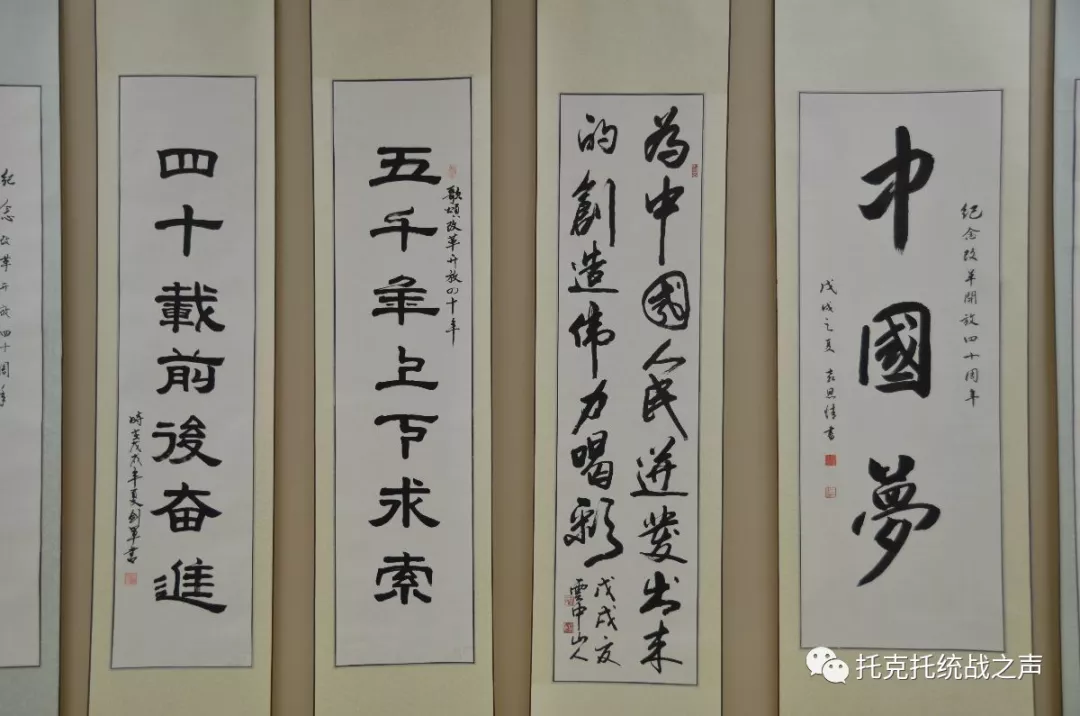 纪念改革開放四十周年
中國夢
戊戌之夏
為中國人民迸發出来
的創造伟力喝彩
戊戌夏
雲中山人
歌頌改革开放四十年
五千年上下求索
四十載前後奋進
時在戊戌年夏剑軍書
纪念改革开放四十周年
托克托统战之声